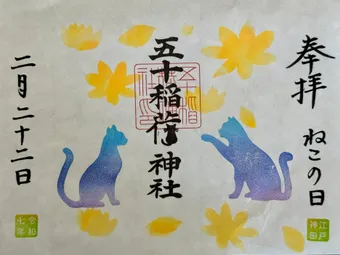 奉拝
ねこの日
江戸
神田
五十稲荷神社
五十稲
荷神社
二月二十二日
令和
七年